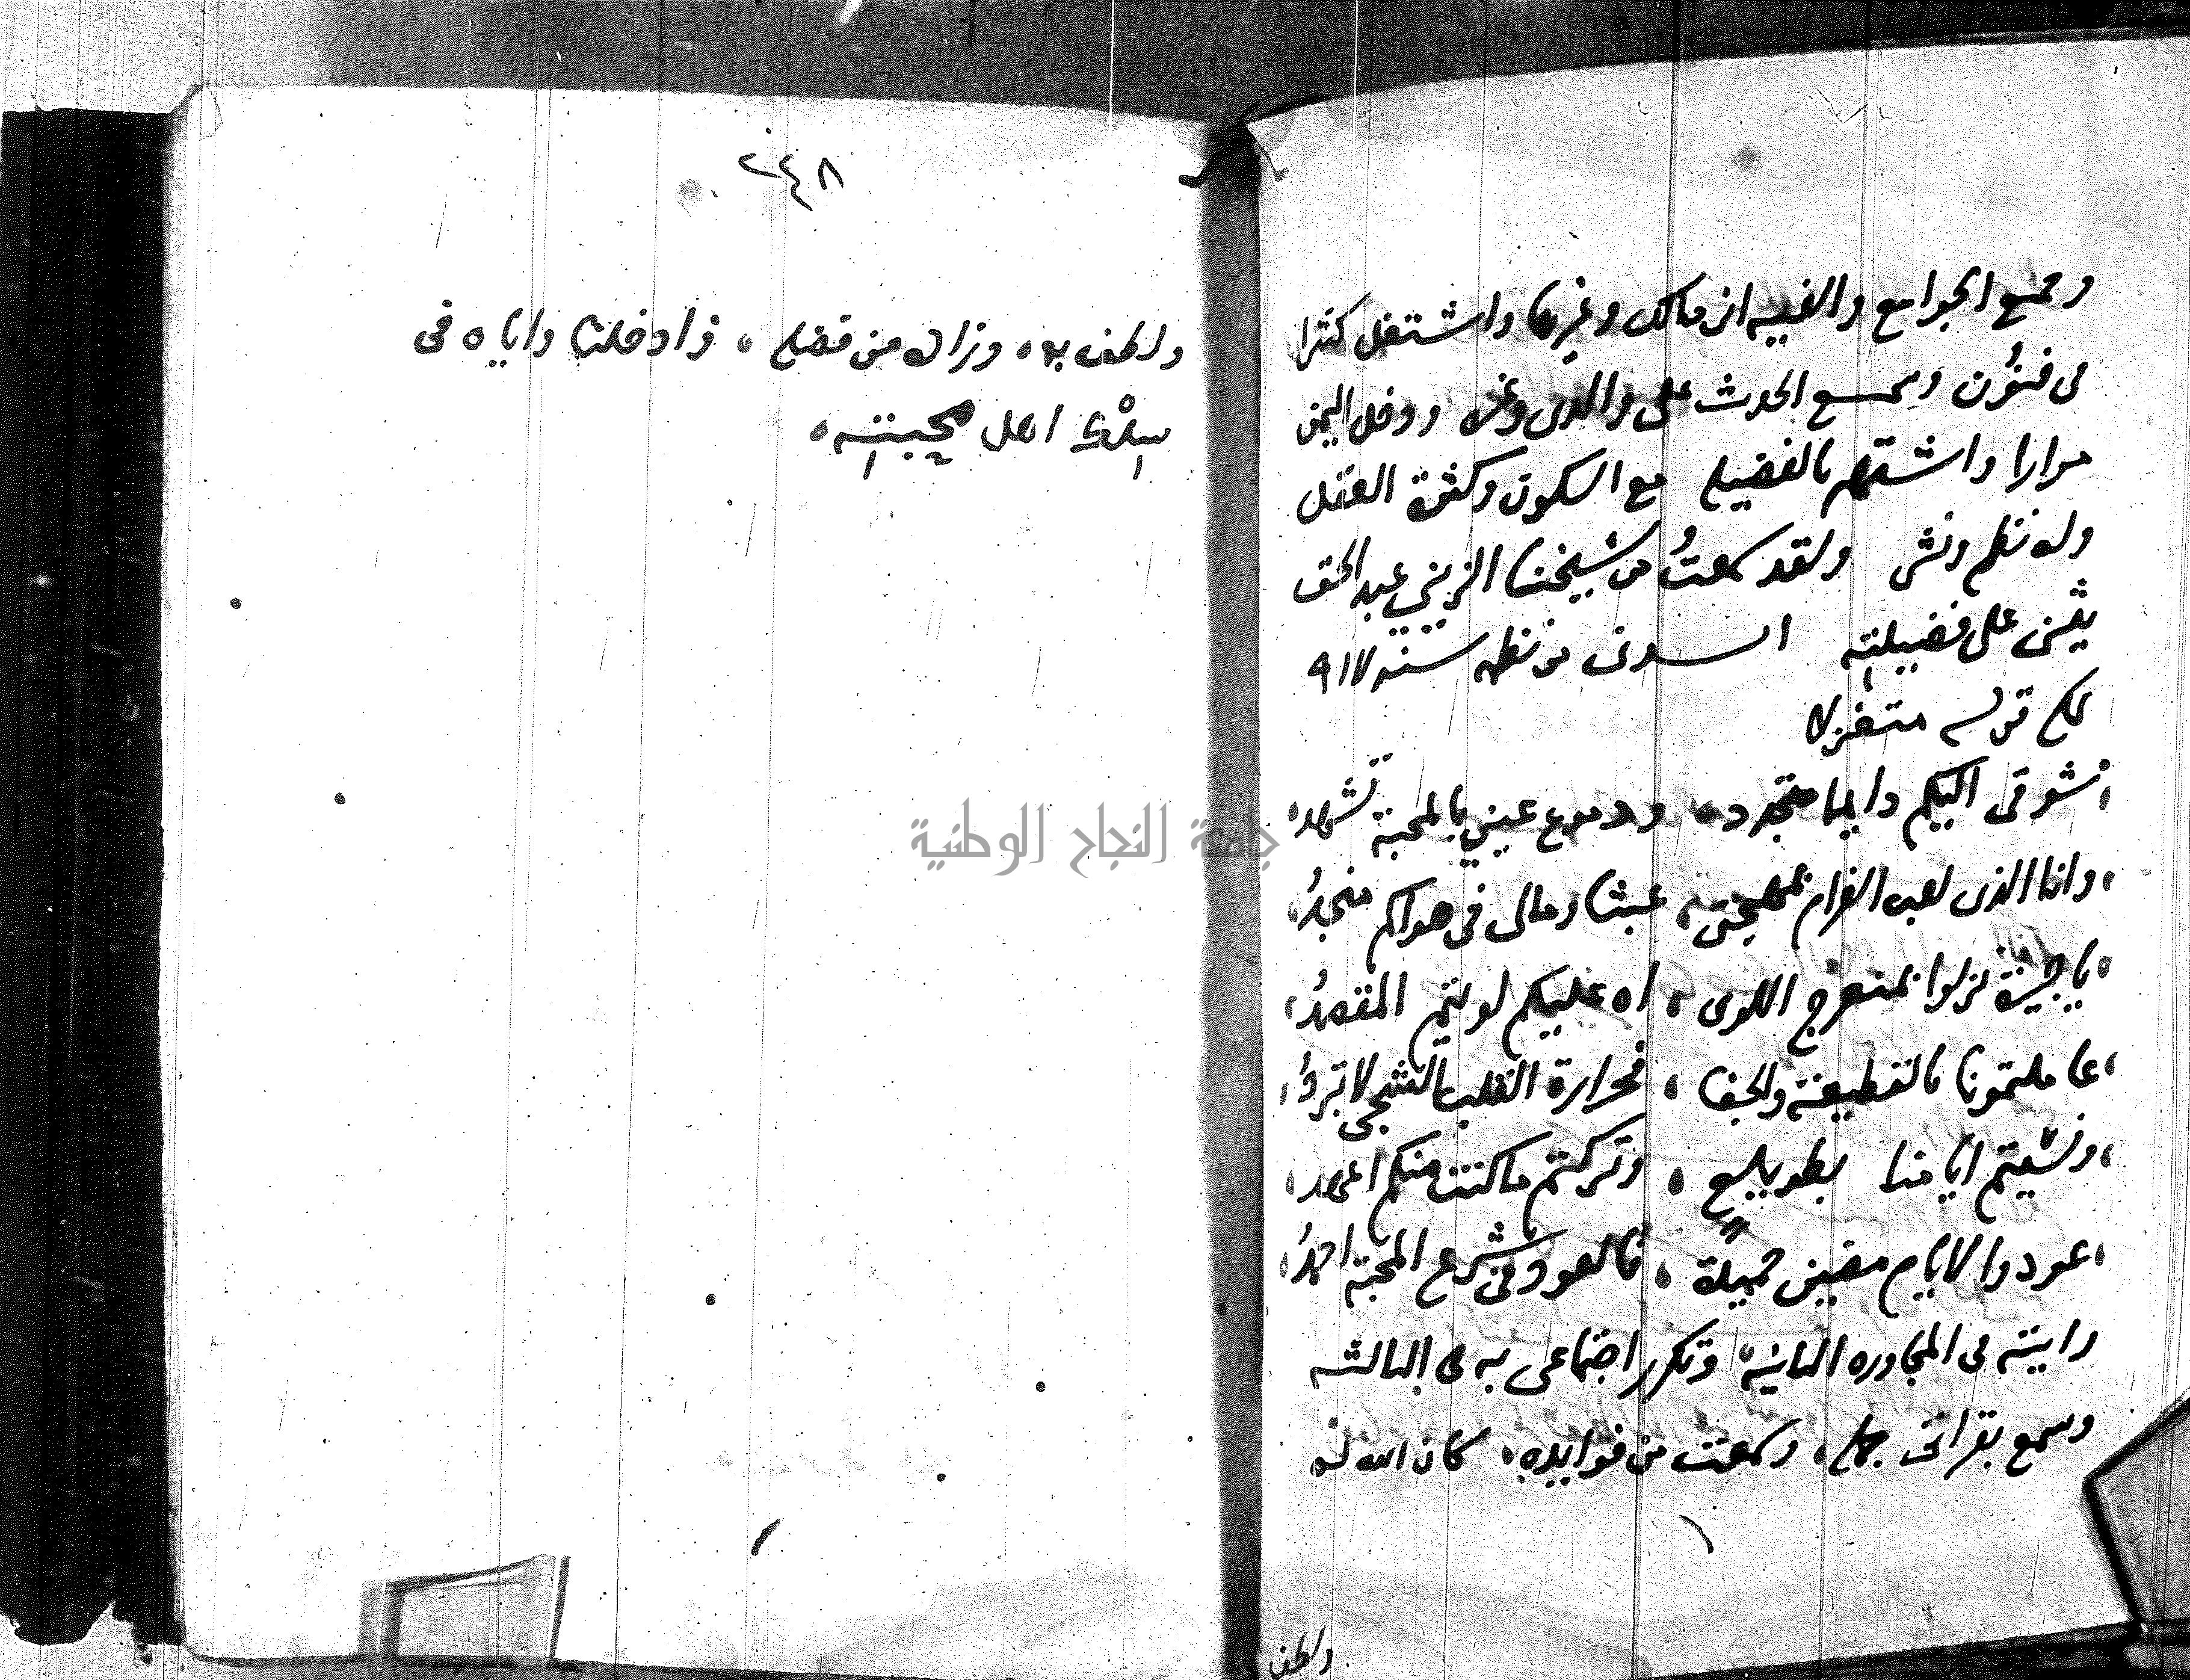 وجمع الجوامع والفيه ابن مالك وغيرها واشتغل كثيرا
فى فنون وسمع الحديث على والدى وغيره ودخل اليمن
مرارا واشتهر بالفضيله مع السكون وكثرة العقل
وله نظم ونثر ولقد سمعتُ من شيخنا الزيني عبد الحق
يثنى على فضيلته من نظمه سنه ٩١٧
قوله متغزلا
شوقى اليكم دايما متجدد، ودموع عيني بالمحبة تشهد،
، وانا الذى لعب الغرام بمهجتى، عبثا ومالى فى هواكم منجدُ،
، يا جيرة نزلوا بمنعرج اللوى، اه عليكم لو يتم المقصدُ،
، عاملتمونا بالقطيعة والجفا، فحرارة القلب الشجى لا تبردُ،
، ونسيتم ايامنا بطويلع، وتركتم ما كنت منكم اعهد،
، عودوا لايام مضين جميلة، فالعود فى شرع المحبة احمدُ،
رايته فى المجاوره الثانيه وتكرر اجتماعى به فى الثالثه
وسمع بقراتى جمله، وسمعت من فوايده، كان الله له
والطف
٢٤٨
ولطف به، وزاده من فضله، وادخلنا واياه فى
سلك اهل محبته،
جامعة النجاح الوطنية